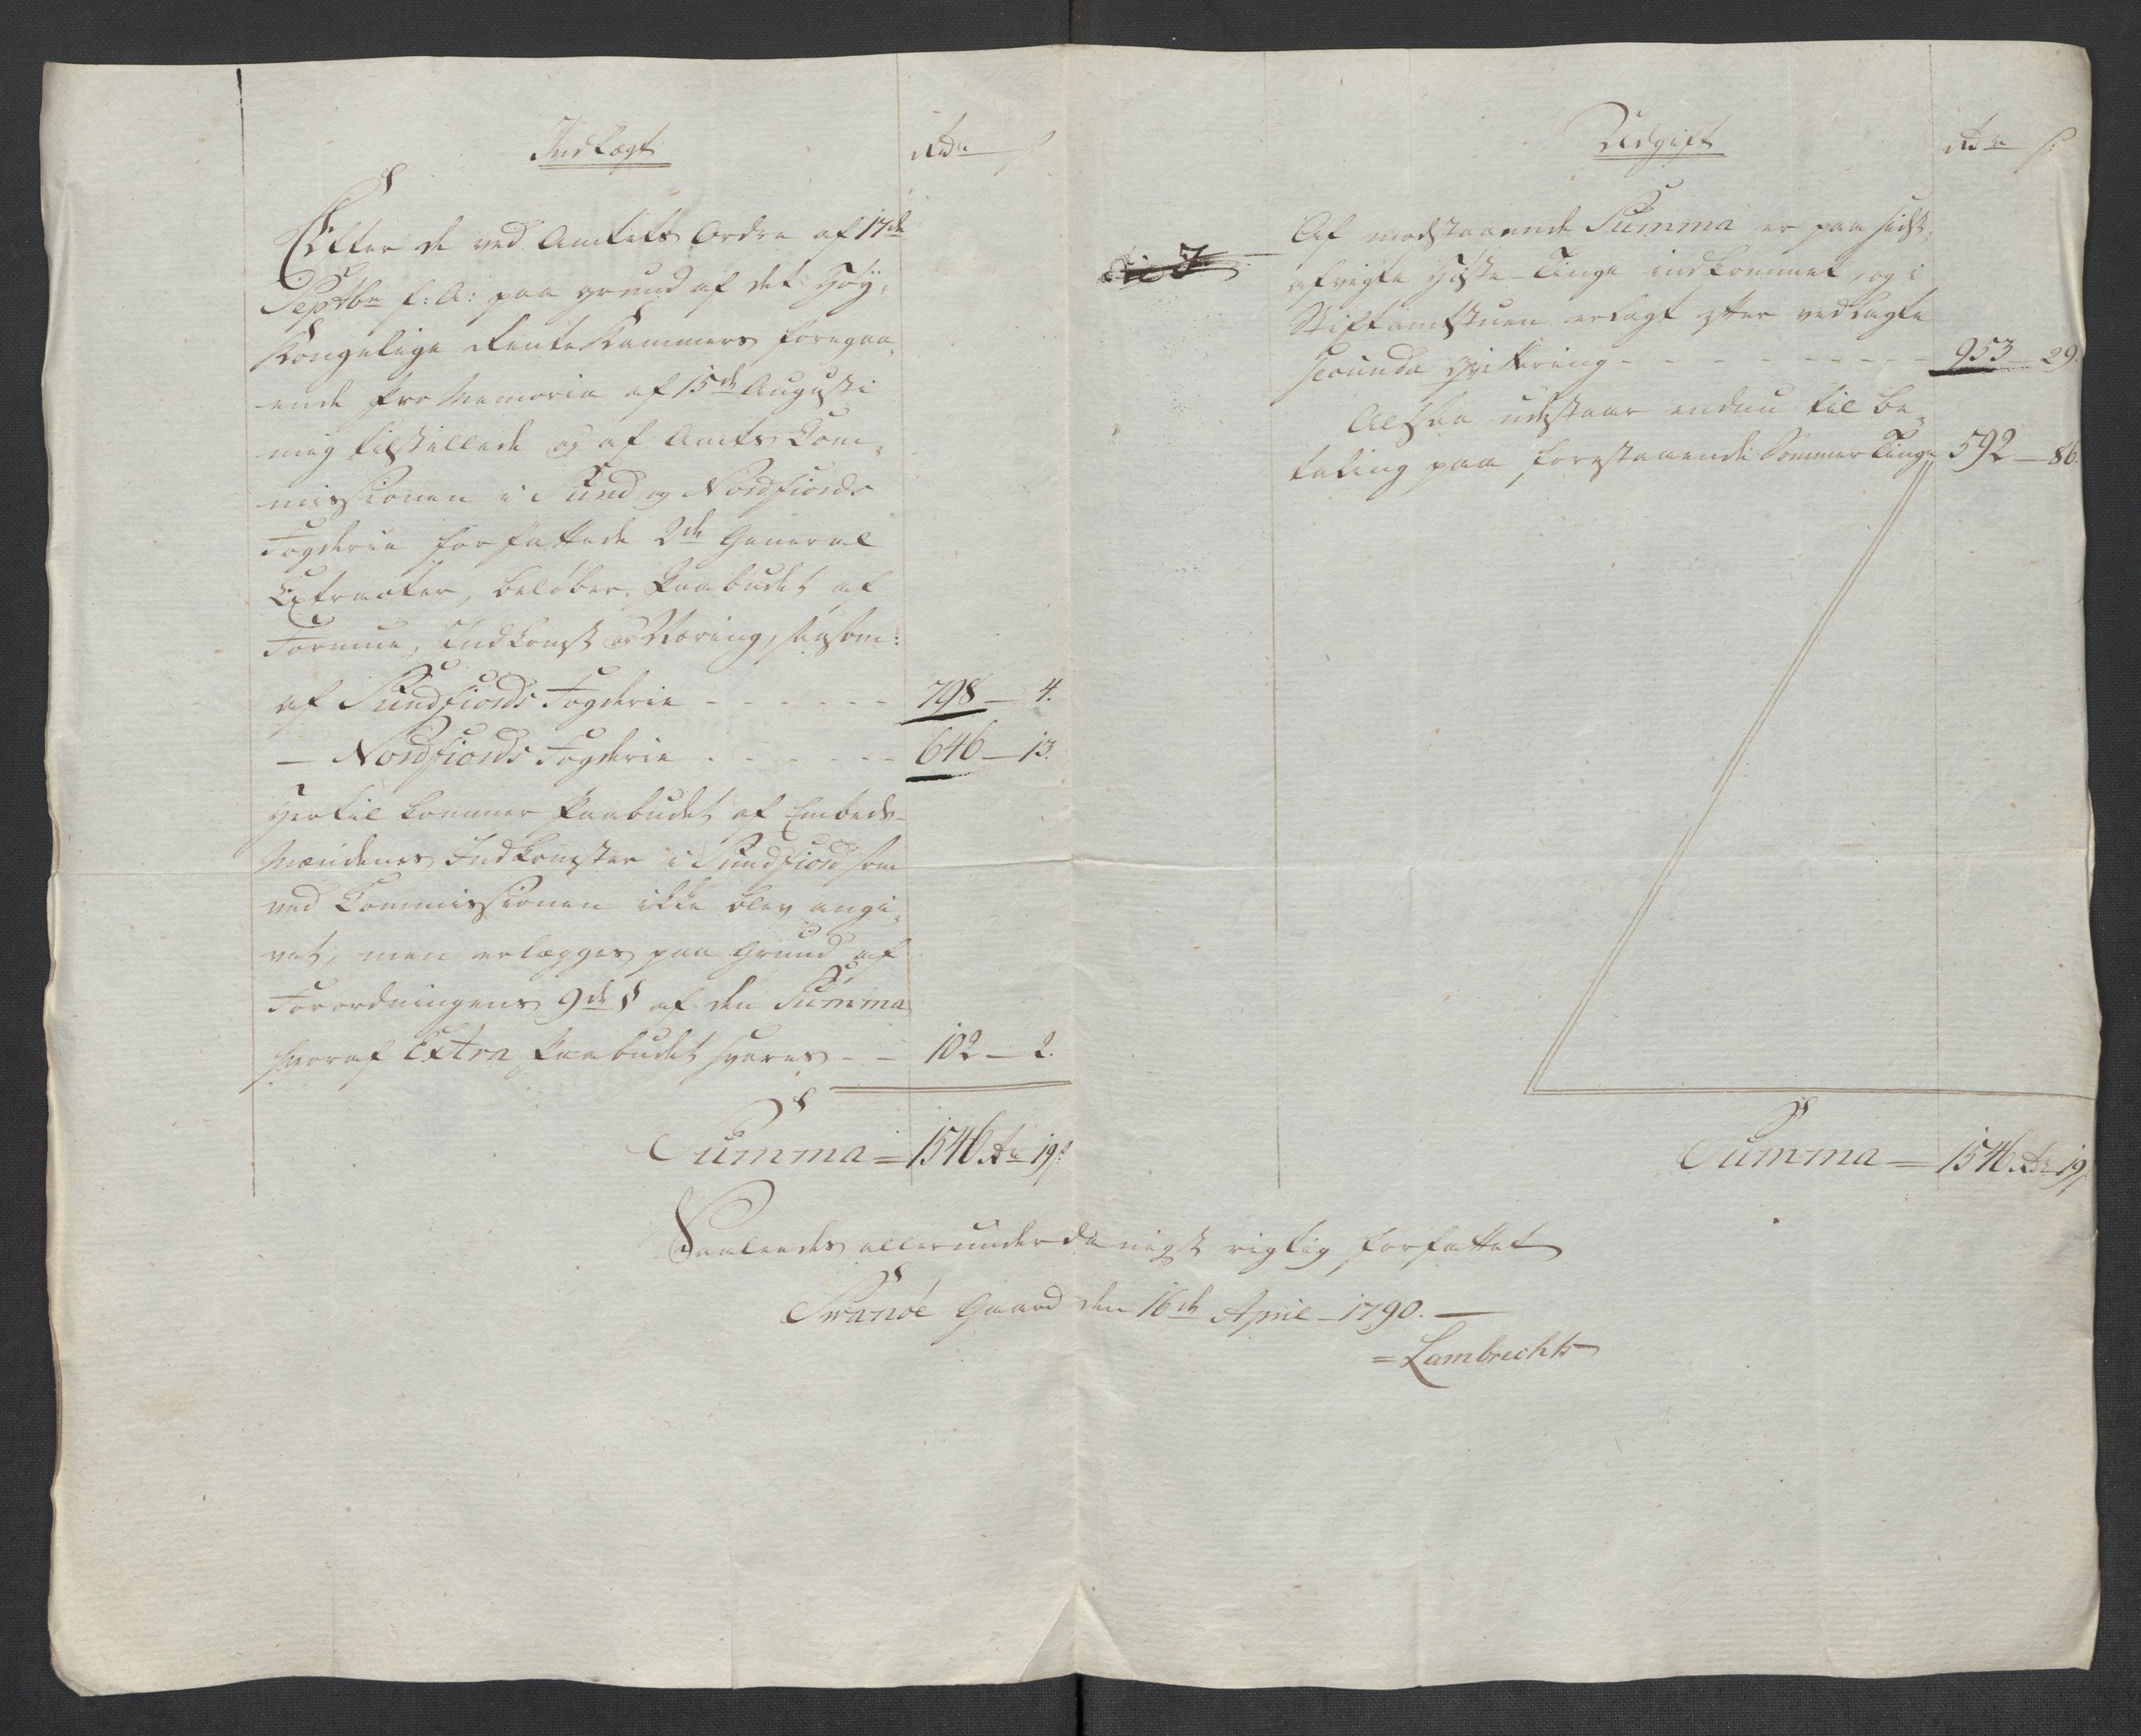 Indtægt
Rdr s:
Efter de ved Amtets Ordre af 17de
Septbr f: A: paa grund af det Høy-
Kongelige RenteKammers foregaa-
ende Pro Memoria af 15de Augusti
mig tilstillede og af Amts Com-
missionen i Sund og Nordfiords
Fogderie forfattede 2de General
Extracter, beløber Paabudet af
Formue, Indkomst og Næring, saasom:
af Sundfiords Fogderie - - - - - - 798 - 4.
- Nordfiords Fogderie - - - - - - 646 - 13.
Hertil kommer Paabudet af Embeds-
Mændenes Indkomster i Sundfiord som
ved Commissionen ikke blev angi-
vet, men erlægges paa Grund af
Forordningens 9de § af den Summa
hvoraf Extra Paabudet svares - - 102 - 2.
Summa = 1546 Rdr 19 s:
Udgift
Rdr s:
No 7.
Af modstaaende Summa er paa sidst-
afvigte Høste-Tinge indkommet, og i
Stiftamtstuen erlagt efter vedlagte
secunda qvittering - - - - - - - - - - 953 - 29.
Altsaa udestaar endnu til be-
taling paa forestaaende Sommer Tinge 592 - 86.
Summa = 1546 Rdr 19
Saaledes allerunderdanigst rigtig forfattet
Svanöe Gaard den 16de April - 1790. -
= Lambrechts